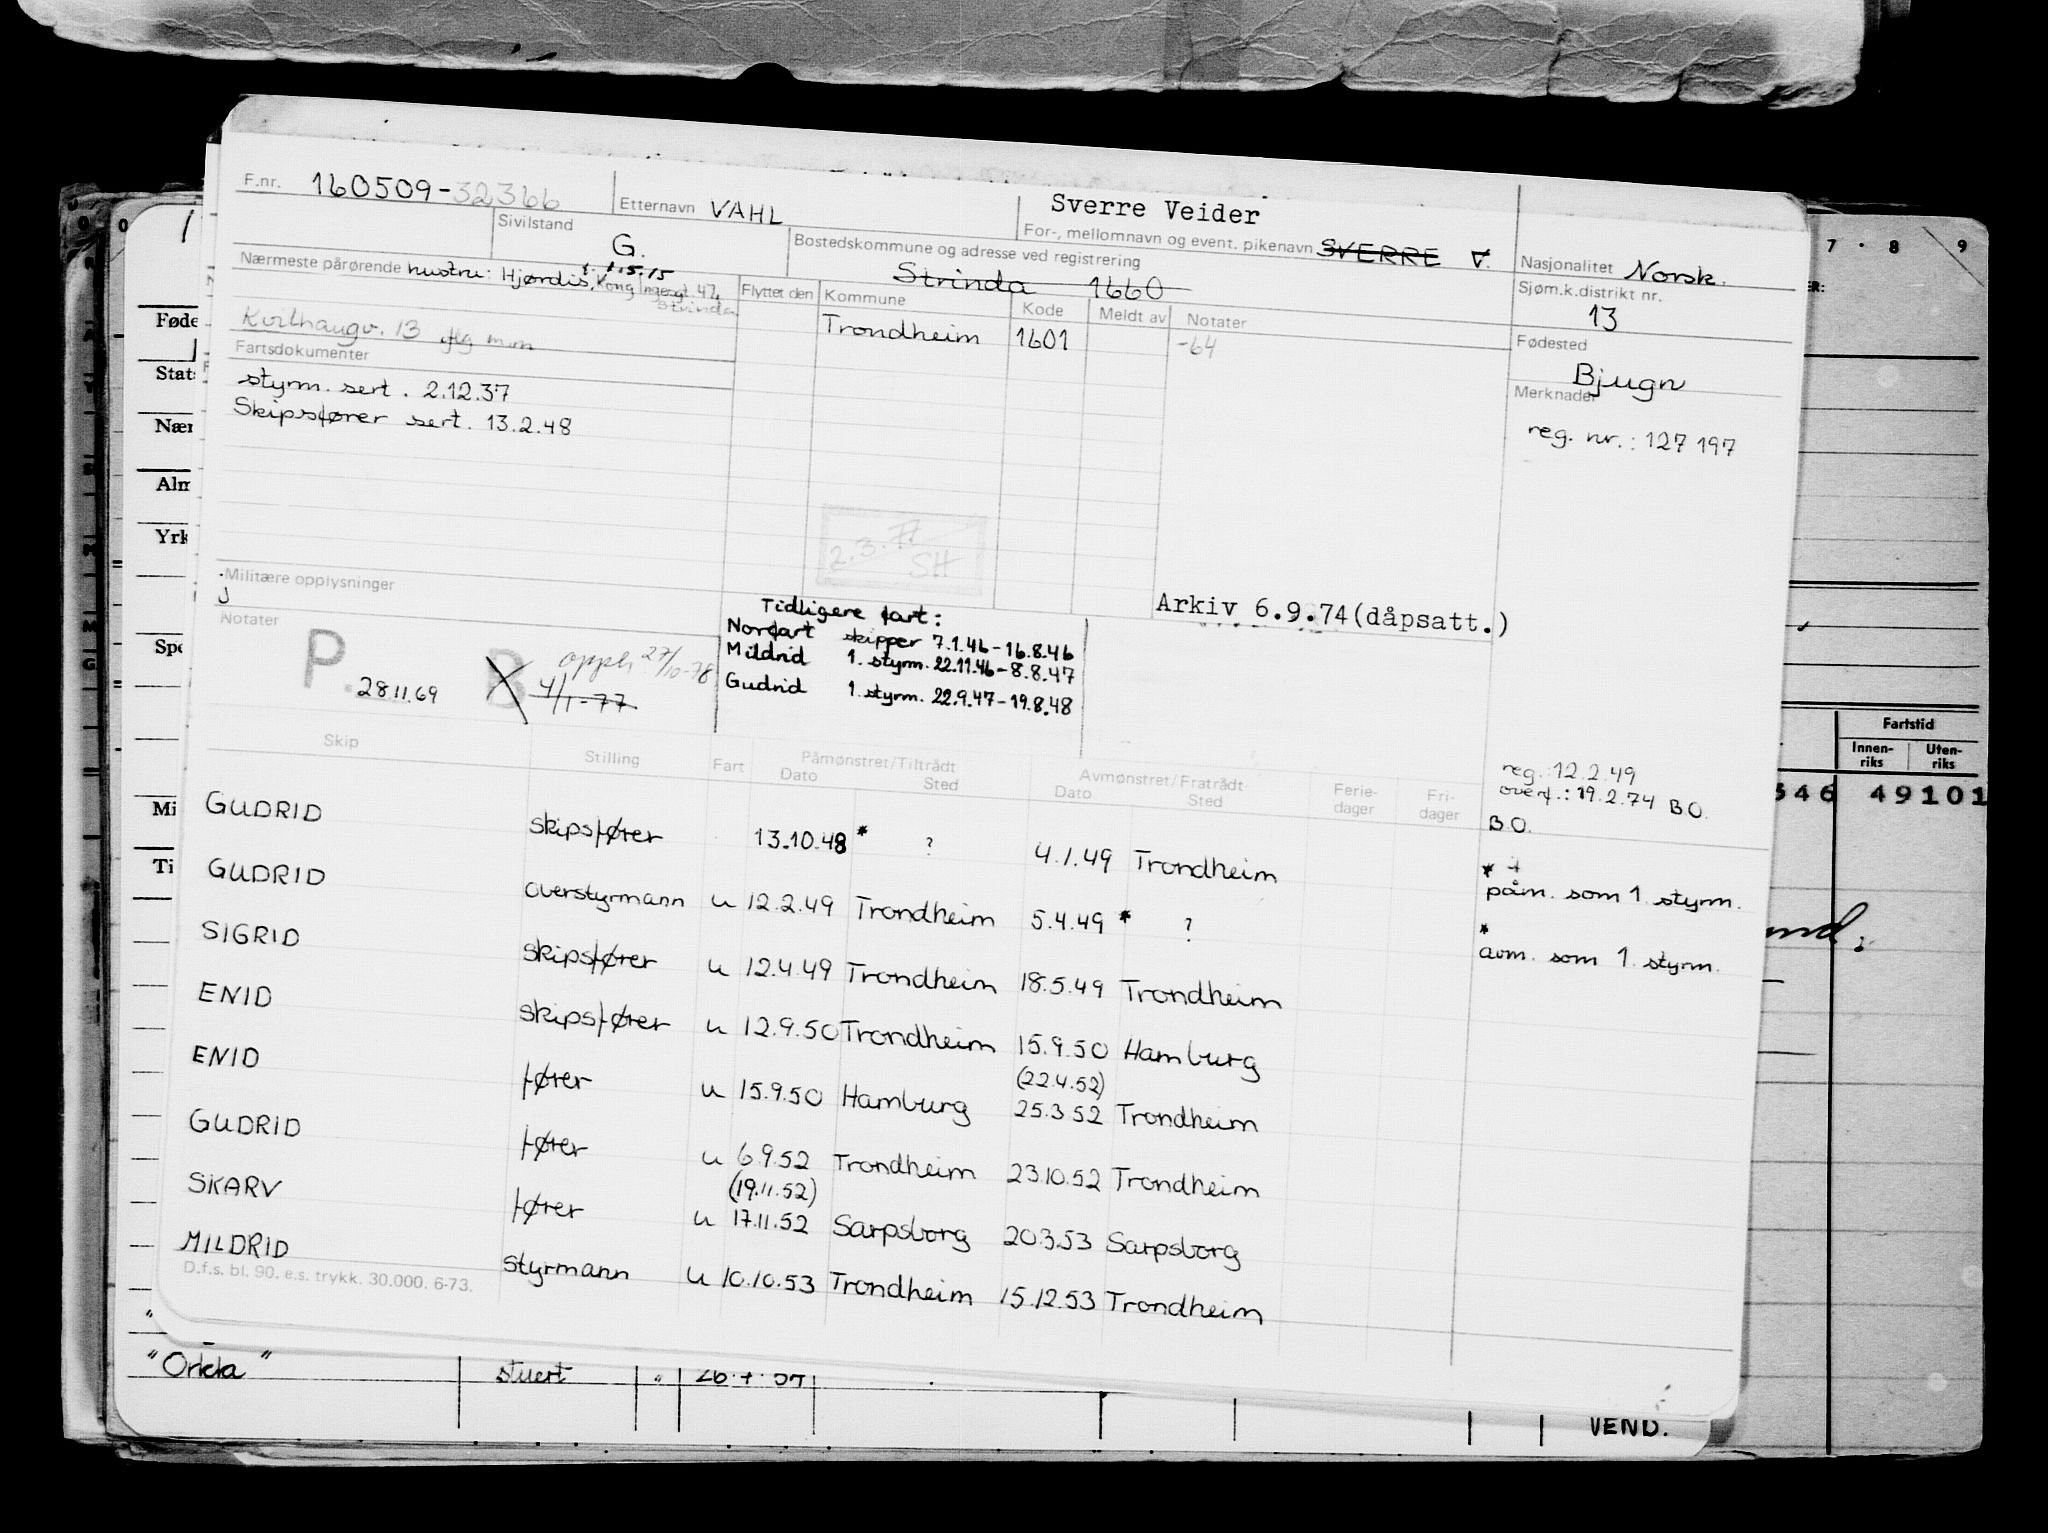 F.nr. 160509-32366
Etternavn VAHL
Sverre Veider
For-, mellomnavn og event. pikenavn SVERRE V.
Nasjonalitet Norsk.
Sivilstand G.
Bostedskommune og adresse ved registrering
Strinda 1660
Sjøm.k.distrikt nr.
13
Nærmeste pårørende hustru: Hjørdis, 1.5.15
Kong Ingesgt. 47,
Strinda
Kvilhaugv. 13
Flyttet den Kommune Kode Meldt av Notater
Trondheim 1601 -64
Fødested
Bjugn
Fartsdokumenter
styrm. sert. 2.12.37
Skipsfører sert. 13.2.48
Merknader
reg. nr.: 127 197
2.3.77
SH
Militære opplysninger
j
Arkiv 6.9.74(dåpsatt.)
Notater
P. 28.11.69
B 4/1-77
opph 27/10-78
Tidligere fart:
Norfart skipper 7.1.46-16.8.46
Mildrid 1. styrm. 22.11.46-8.8.47
Gudrid 1. styrm. 22.9.47-19.8.48
reg.: 12.2.49
overf.: 19.2.74 B.O.
B.O.
Skip Stilling Fart Påmønstret/Tiltrådt Dato Sted Avmønstret/Fratrådt Dato Sted Ferie-dager Fri-dager
GUDRID skipsfører 13.10.48* ? 4.1.49 Trondheim * påm. som 1. styrm.
GUDRID overstyrmann u 12.2.49 Trondheim 5.4.49* ? * avm. som 1. styrm.
SIGRID skipsfører u 12.4.49 Trondheim 18.5.49 Trondheim
ENID skipsfører u 12.9.50 Trondheim 15.9.50 Hamburg
ENID fører u 15.9.50 Hamburg (22.4.52) 25.3.52 Trondheim
GUDRID fører u 6.9.52 Trondheim 23.10.52 Trondheim
SKARV fører u (19.11.52) 17.11.52 Sarpsborg 20.3.53 Sarpsborg
MILDRID styrmann u 10.10.53 Trondheim 15.12.53 Trondheim
D.f.s. bl. 90. e.s. trykk. 30.000. 6-73.
"Orkla" stuert "
VEND.
7 · 8 9
Føde
Stats
Nær
Alm
Yrk
Spe
Mi
Ti
Fartstid
Innen-riks Uten-riks
346 49101